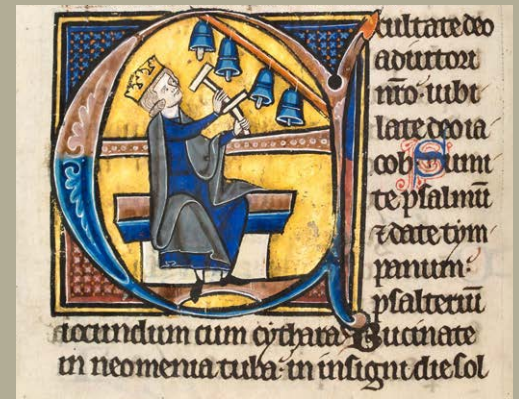 Exultate deo
adiutori
nr̄o· iubi
late deo ia
cob· Sumi
te psalmū
⁊ date tym
panum:
psalteriū
iocundum cum cythara· Bucinate
in neomenia tuba· in insigni die sol